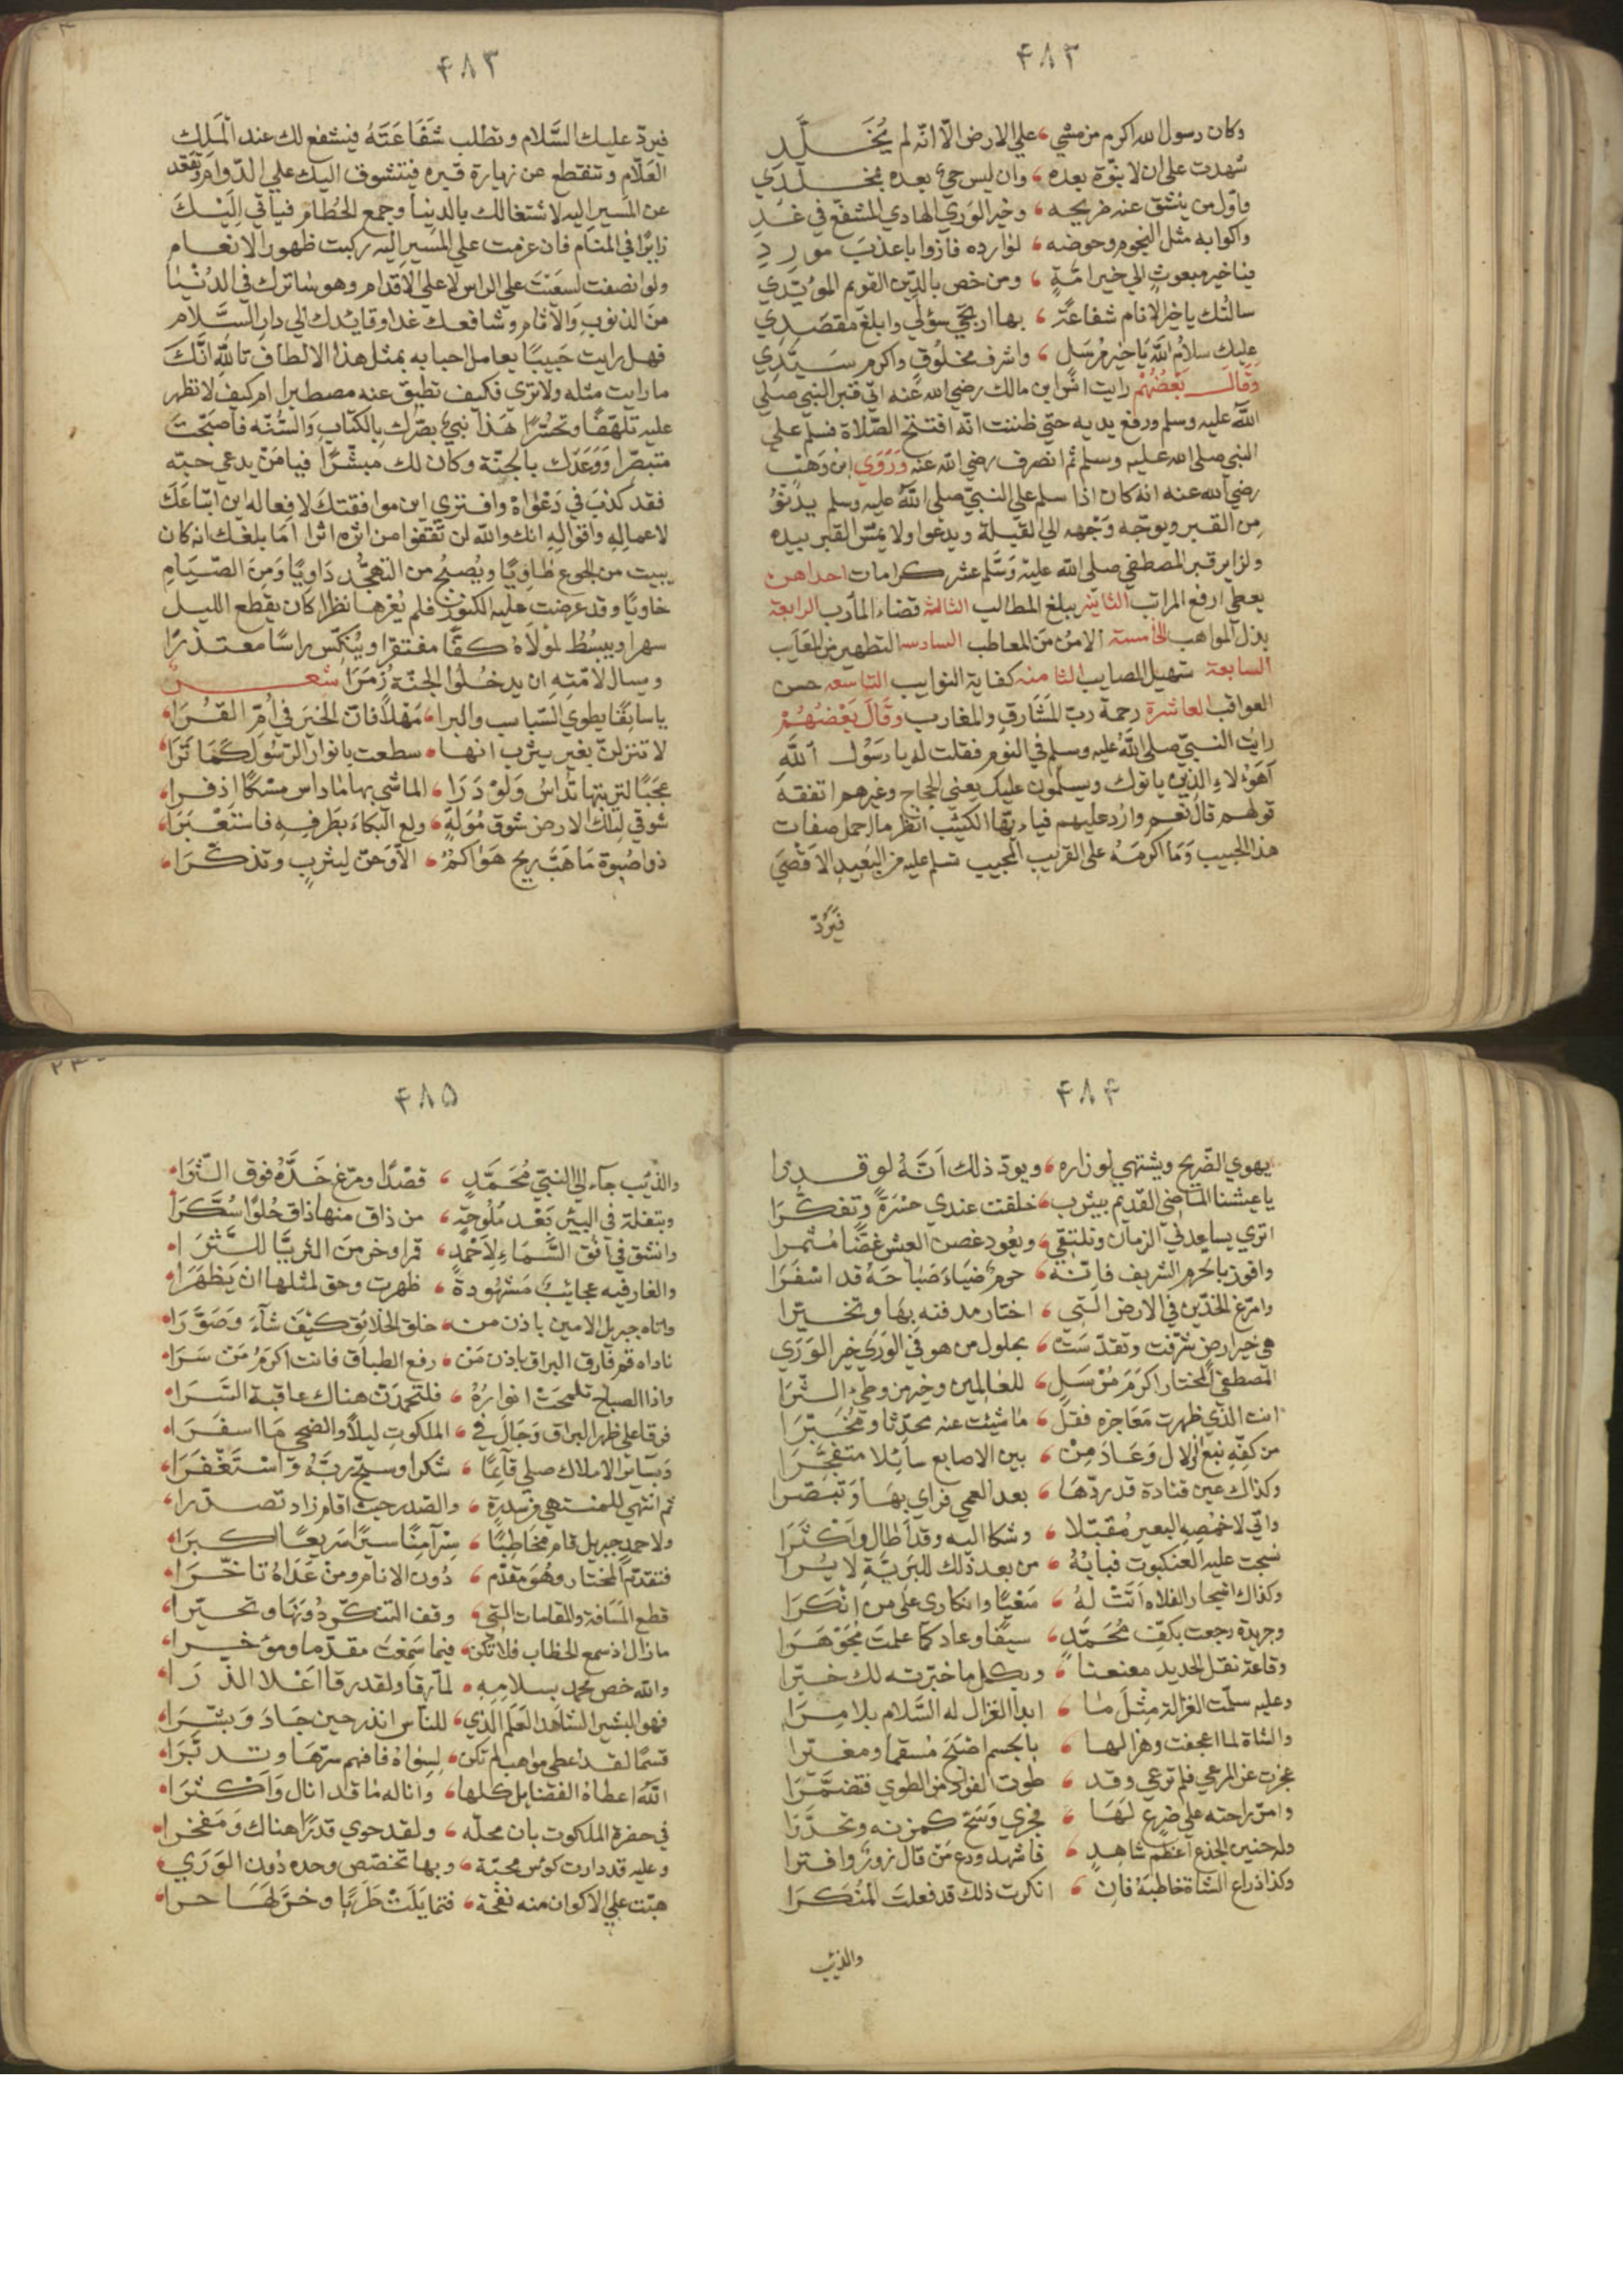 ٤٨٣
وكان رسول الله اكرم من مشي علي الارض الا انه لم يُخَلَّدِ
شهدت علي ان لا نبوّة بعده وان ليس حيّ بعده بمخلّدي
واوّل من ينشق عنه ضريحه وخير الوري الهادي المشفّع في غدِ
واكوابه مثل النجوم وحوضه لوارده فازوا باعذب موردِ
فيا خير مبعوثٍ الي خير امّةٍ ومن خص بالدين القويم المؤيّدي
سالتك يا خير الانام شفاعةً بها ارتجي سؤلي وابلغ مقصَدِي
عليك سلام الله يا خير مُرسَلٍ واشرف مخلُوقٍ واكرم سَيّدِي
وَقَال بَعْضُهُمْ رايت انس ابن مالك رضي الله عنه اتي قبر النبي صلي
الله عليه وسلم ورفع يديه حتي ظننت انه افتتح الصّلاة فسلم علي
النبي صلي الله عليه وسلم ثم انصرف رضي الله عنه وَرَوَي ابن وَهْب
رضي الله عنه انه كان اذا سلم علي النبي صلي الله عليه وسلم يدنُوُ
مِن القبر ويوجّه وَجْهه الي القبلة ويدعوا ولا يمسّ القبر بيده
ولزاير قبر المصطفي صلي الله عليه وَسَلّم عشر كرامات احداهن
يعطي ارفع المراتب الثانيه يبلغ المطالب الثالثة قضاء المآرب الرابعة
بذل المواهب الخامسة الامن من المعاطب السادسه التطهير من المعَايب
السابعة تسهيل المصايب الثامنه كفاية النوايب التاسعه حسن
العواقب العاشرة رحمة ربّ المشَارق والمغارب وقَالَ بَعْضُهُمْ
رايت النبيّ صلي الله عليه وسلم في النوم فقلت له يا رَسُول الله
آهَؤُلاءِ الذين ياتوك ويسلمون عليك يعني الحجاج وغيرهم اتفقه
قولهم قال نعم واَرُد عليهم فياءيّها الكئيب انظر ما اجمل صفات
هذا الحبيب وَمَا اكرمَهُ علي القريب المجيب تسلم عليه من البَعِيدِ الاقصَي
فيَرُدّ
٤٨٣
فيردّ عليك السَّلام وتطلب شَفَاعَتَهُ فيشفع لك عند المَلِك
العَلّامِ وتنقطع عن زيارة قبره فيتشوف اليك علي الدّوام وتقعد
عن المَسِيرِ اليه لاشتغالك بالدنيا وجمع الحُطَام فيأتي اليْكَ
زايرًا في المنام فان عزمت علي المَسير اليه ركبت ظهور الانعام
ولو انصفت لسعَيْتَ علي الراس لا علي الاقدام وهو شاترك في الدُنْيَا
منَ الذنوبِ والآثام وشافعك غدا وقايدك الي دار السَّلام
فهل رايت حَبيبًا يعامل احبابه بمثل هذا الالطاف تاللّهِ انّكَ
ما رايت مثله ولا تري فكيف تطيق عنه مصطبرا ام كيف لا تظهر
عليه تلهّفًا وتحسُّرًا هَذَا نبيٌّ بصّرك بالكتَابِ وَالسُنّه فاصبَحْتَ
متبصّرا وَوَعَدَك بالجنّة وكان لك مبشّرًا فيا مَنْ يدعي حبّه
فقد كذبَ في دَعْوَاهُ وافتري اين موافقتكَ لافعاله اين اتباعَكَ
لاعمالِهِ واقوالِهِ انك والله لن تَقفوا من اثره اثرا امَا بلغك انه كان
يبيت من الجوع طَاويًا ويُصبِحُ من التهجُّد ذَاويًا وَمِنَ الصّيَامِ
خاويًا وقد عرضت عليه الكنوز فلم يُعْرهَا نظرا كان يقطع الليل
سهرا ويبسُطُ لمَولاهُ كفًّا مفتقرا ويُنكّس راسًا معتذرًا
ويسال لامّته ان يدخلُوا الجنّة زُمَرَا شعر
يا سابِقًا يطوي السّباسب والبرا مَهْلاً فانّ الخيرَ في امِّ القُرَا
لا تنزلنّ بغير يثرب انها سطعت بانوار الرّسُولِ كمَا تَرَا
عجَبًا لتربتها تُدَاسُ وَلَوْ دَرَا الماشي بها مَا داس مسْكًا اذفرا
شوقي لتلك الارض شوق مُوَلَهٍ ولع البكاء بطَرفِهِ فاستعْبَرَا
ذو اصبوة مَا هَبَّ ريح هَوَاكمُ الا وَحنّ ليثربٍ وتذكّرَا
٤٨٤
يهوي الضّريح ويشتهي لو زاره ويودّ ذلك اَنَّهُ لو قدرا
يا عيشنا الماضي القديم بيثرب خلقت عندي حسْرَةً وتفكّرَا
اتري يساعدنيَ الزمان ونلتقي ويعُود غصن العيش غضًّا مُثمرا
وافوز بالحرم الشريف فانّه حرم ضيَاءَ صَبَاحَهُ قد اسْفَرَا
وامرّغ الخدّين في الارض الّتي اختار مدفنه بهَا وتخيّرا
هي خير ارض شرّفت وتقدّسَت بحلول من هو في الوَرَي خير الوَرَي
المصطفي المختار اكرَمَ مُرْسَلٍ للعَالمين وخير من وطئ الثّرَا
انت الذي ظهرت مَعَاجزه فقل ما شيت عنه محدّثا ومُخبِّرَا
من كفّهِ نبع الزلال وَعَادَ مِنْ بين الاصابع سَائِلا متفجّرَا
وكذاك عين قتادة قد ردّهَا بعد العمي فراي بهَا وَتبصّرا
واتي لاخمُصِهِ البعير مُقبّلا وشكا اليه وقد اَطال وَاَكثَرَا
نسجت عليه العنكبوت فبابُهُ من بعد ذلك للبَريّةِ لا يُرَا
وكذاك اشجار الفلاه اَتَتْ لهُ سَعْيًا وانكاري علي من انكَرَا
وجريدة رجعت بكفّ مُحَمّدٍ سيفًا وعاد كما علمتَ مُجَوْهَرَا
وقاعة نقل الحديد معنعنًا وبكل ما خبّرته لك خبّرا
وعليه سلّمت الغزالة مِثلَ ما ابدا الغزال له السّلام بلا مِرَا
والشاة لما اعجفت وهزالها بالجسم اضحَي مُسقمًا ومغيّرا
عجزت عن المرعي فلم ترعي وقد طوت الفؤاد من الطوي فتضمّرَا
وامرّ راحته علي ضرع لهَا فجري وَسَحّ كمزنه وتحدّرَا
وله حنين الجذع اعظم شاهدٍ فاشهد ودع مَن قال زورًا وافترا
وكذا ذراع الشاة خاطبهُ فان انكرت ذلك قد فعلتَ المُنكَرَا
والذئب
٤٨٥
والذئب جآء الي النبيّ مُحَمّدٍ قصْدًا ومرّغ خَدَّهُ فوق الثّرَا
وبتفلة في البير بَعْد مُلُوحةٍ من ذاق منها ذاق حُلوًا سُكّرَا
وانشق في اُفُق السَّمَاءِ لاَحْمَدٍ قمرا وخر منَ الثريّا للثّرَا
والغار فيه عجائبٌ مَشهُودةً ظهرت وحق لمثلها ان يَظهَرَا
واتاه جبريل الامين باذن من خلق الخلائق كَيْفَ شَآءَ وَصَوّرَا
ناداه قم فارق البراق باذن مَن رفع الطباق فانت اكرَمُ مَنْ سَرَا
واذا الصباح تلمّحَتْ انوَارُهُ فلتحمدنّ هناك عاقبة السّرَا
فرقا علي ظهر البراق وَجَالَ في الملكوتِ ليلاً والضحي مَا اسفَرَا
وَبسَائر الاملاك صلي قآئِمًا شكرا وسبّح ربّهُ وَاسْتَغْفَرَا
ثم انتهي للمنتهي من سدرة والصدر حيث اقام زاد تصدّرا
ولاحمد جبريل قام مخاطِبًا سِرْ آمِنًا سيرًا سَريعًا اكبرَا
فتقدّم المختار وهُوَ مقدّم دُون الانام ومن عَدَاهُ تاخّرَا
قطع المَسَافة والمقامات التي وقف التفكّر دُونَهَا وتحيّرا
ما زال اذ سمع الخطاب فلا تكن فيما سَمِعْتَ مقدّما ومؤخرا
والله خص محمد بسلامِهِ لمّا رقا ولقد رقا اعْلا الذّرَا
فهو البشير الشاهد العَلَم الّذي للنّاس انذر حين جَادَ وَبشّرَا
قسمًا لقد اعطي مواهب لم تكن لِسِوَاهُ فافهم سرّهَا وتدبّرَا
اللهُ اعطاهُ الفضايل كلها وَاناله مَا قد انال وَاَكثرَا
في حضرة الملكوت بان محلّه ولقد حوي قدرًا هناك وَمَفخرا
وعليه قد دارت كؤس محبّة وبها تخصّص وحده دُون الوَرَي
هبّت علي الاكوان منه نفحة فتمايَلَتْ طَرَبًا وخرّ لهَا حرا